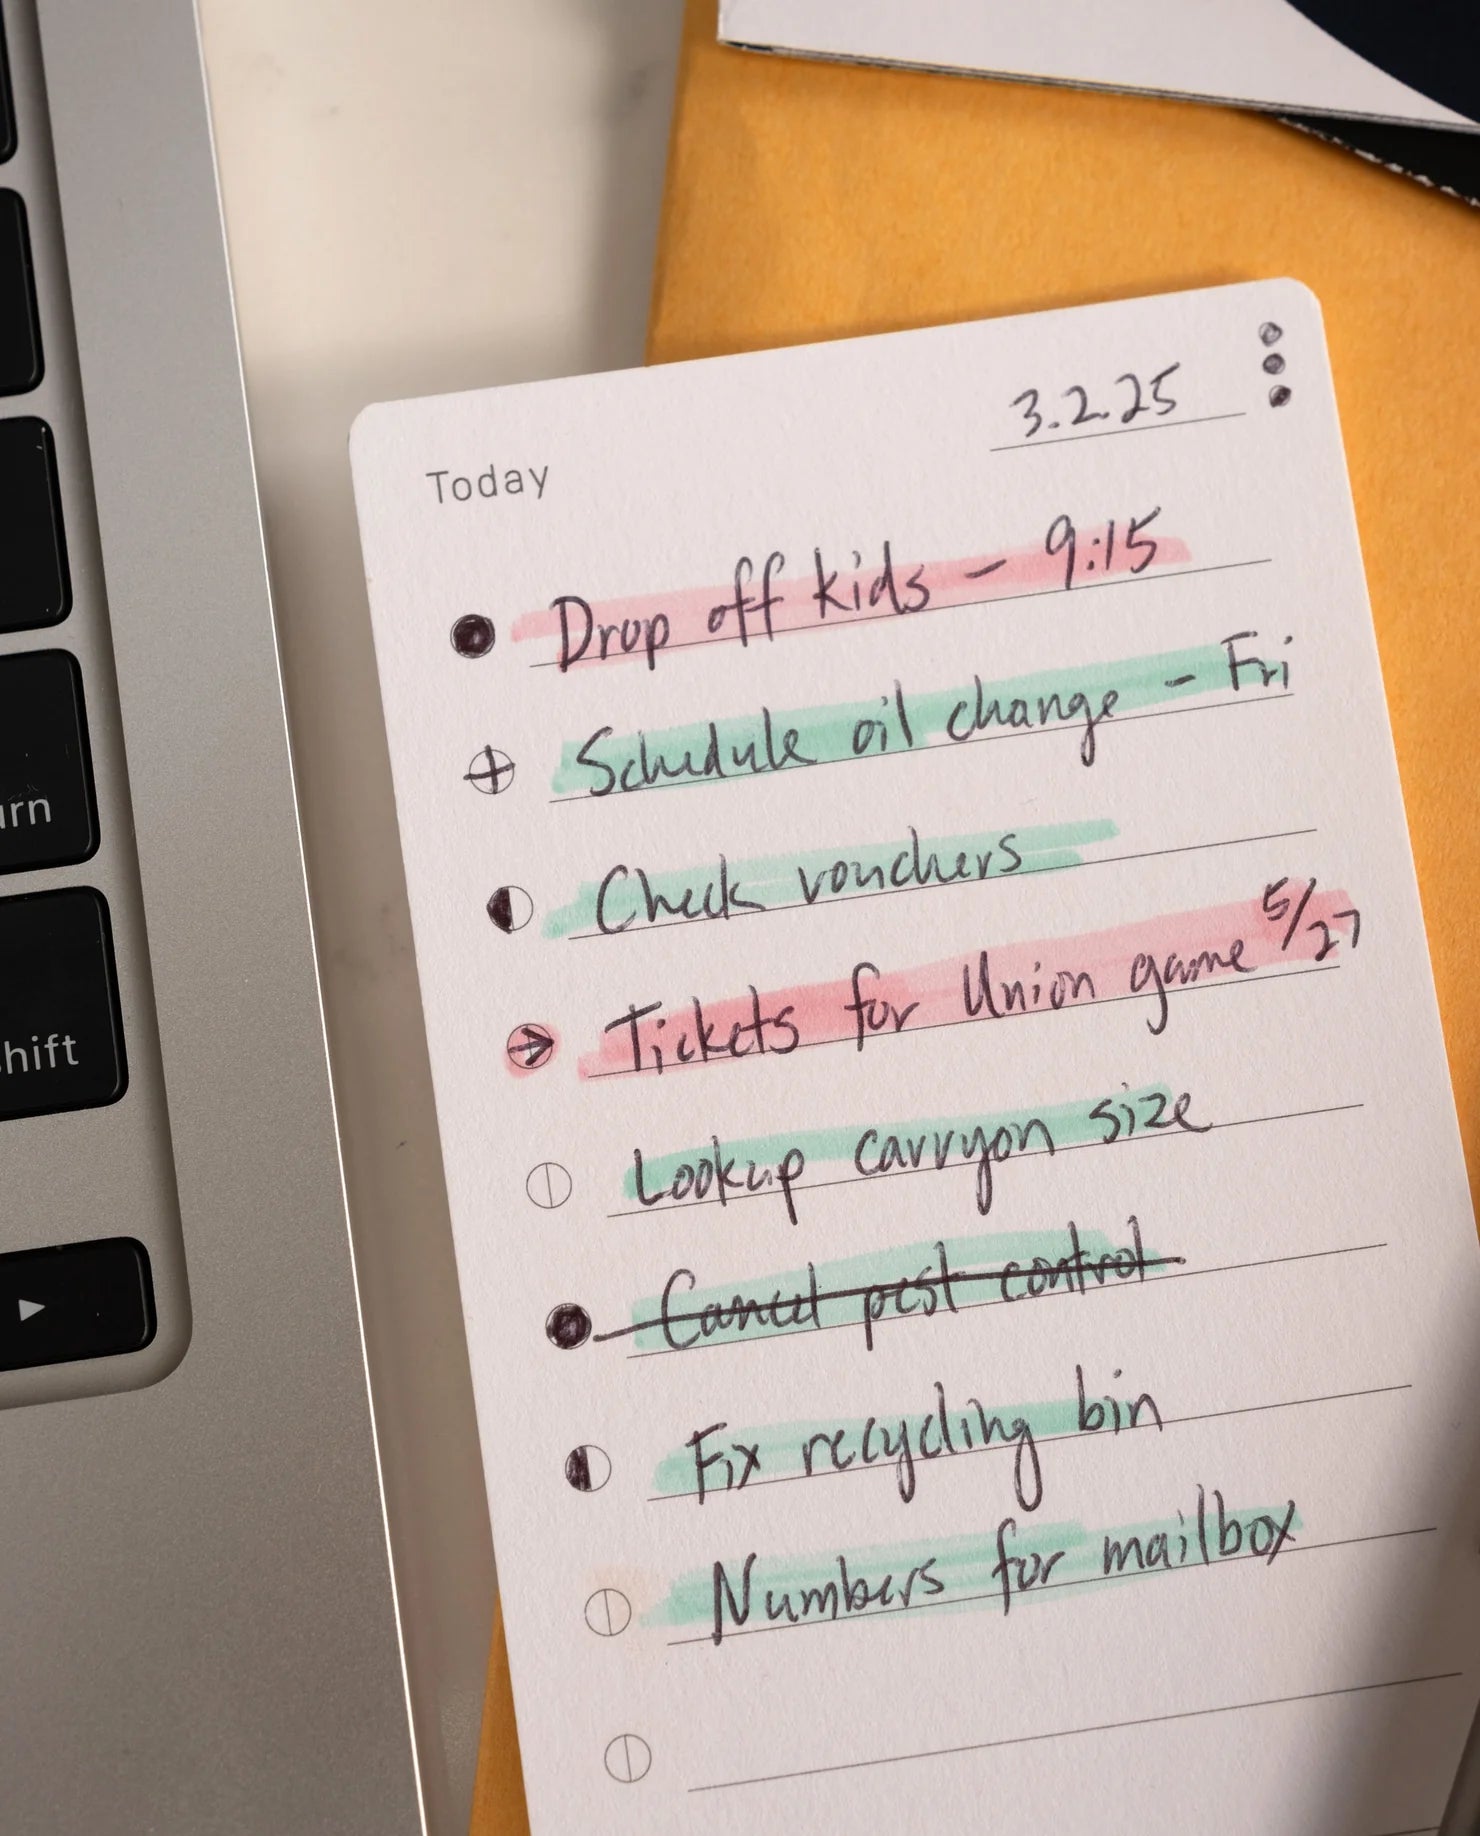 3.2.25
Today
Drop off kids - 9:15
Schedule oil change - Fri
Check vouchers
Tickets for Union game 5/27
Lookup carryon size
Cancel pest control
Fix recycling bin
Numbers for mailbox
urn
hift